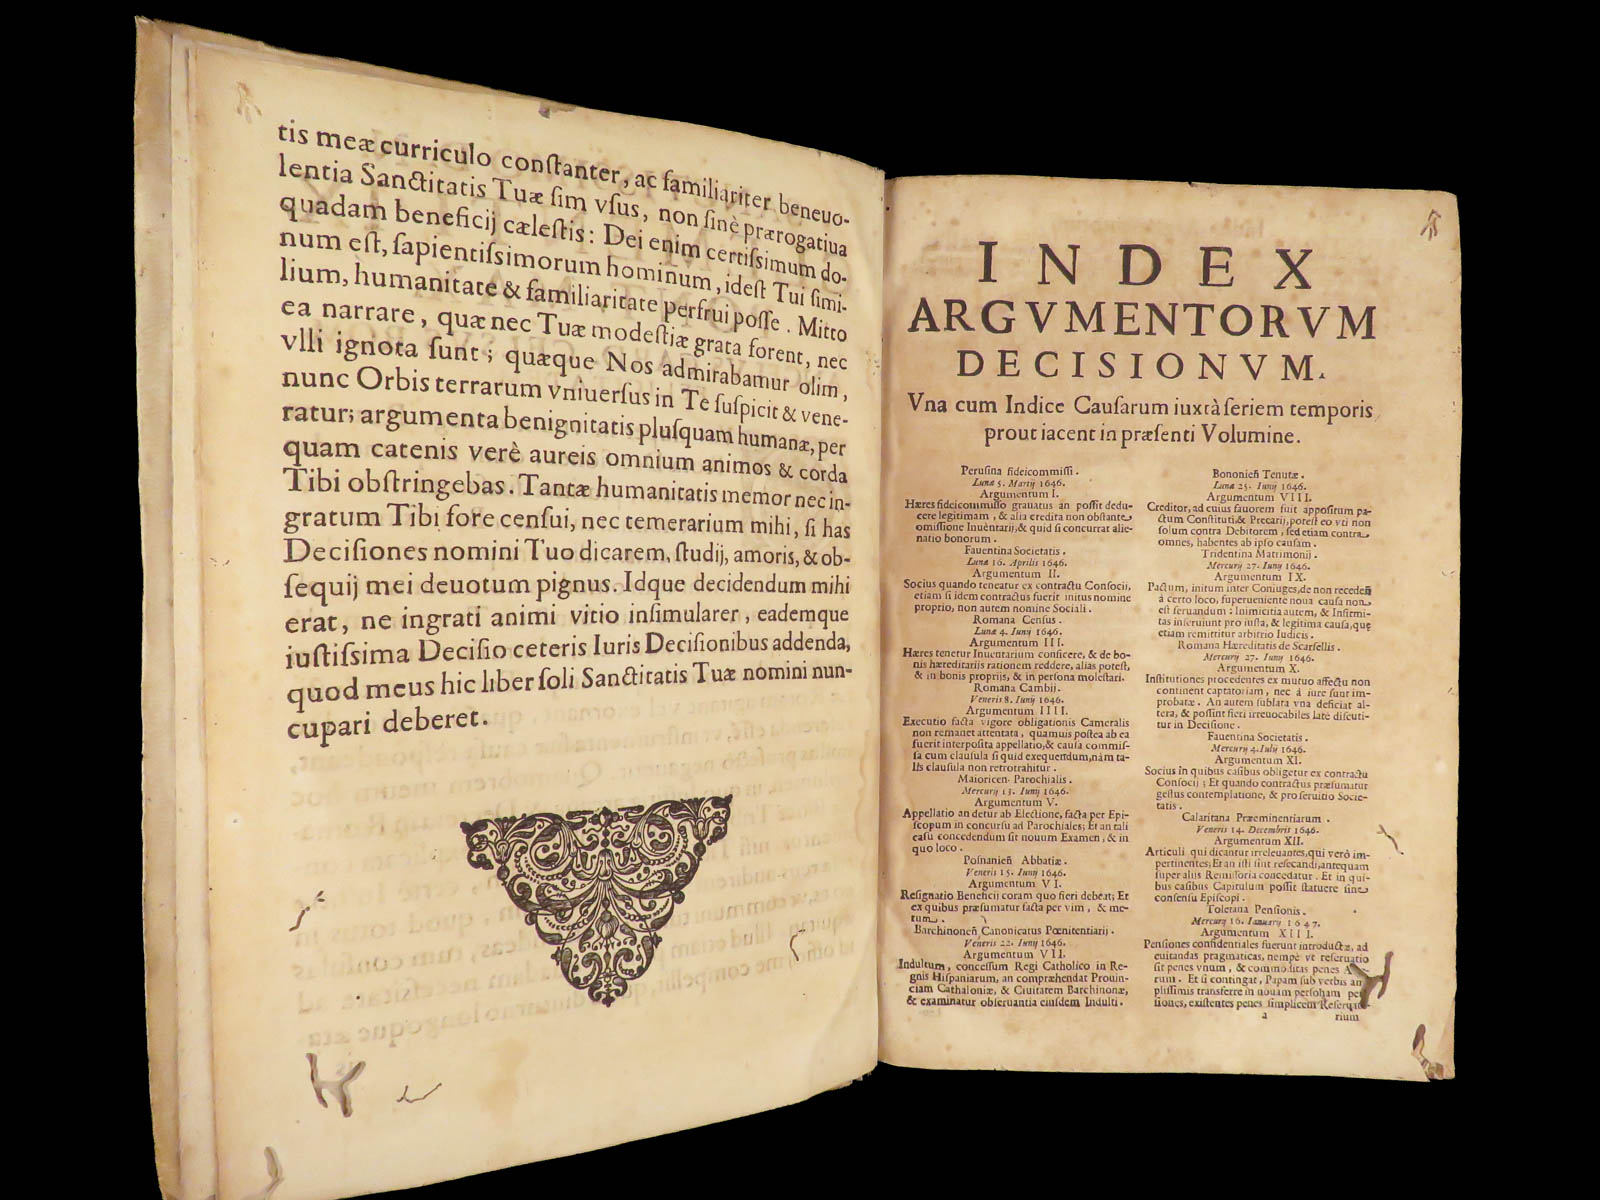 tis meæ curriculo conſtanter, ac familiariter beneuo-
lentia Sanctitatis Tuæ ſim vſus, non ſinè prærogatiua
quadam beneficij cæleſtis: Dei enim certiſsimum do-
num eſt, ſapientiſsimorum hominum, ideſt Tui ſimi-
lium, humanitate & familiaritate perfrui poſſe. Mitto
ea narrare, quæ nec Tuæ modeſtiæ grata forent, nec
vlli ignota ſunt; quæque Nos admirabamur olim,
nunc Orbis terrarum vniuerſus in Te ſuſpicit & vene-
ratur; argumenta benignitatis pluſquam humanæ, per
quam catenis verè aureis omnium animos & corda
Tibi obſtringebas. Tantæ humanitatis memor nec in-
gratum Tibi fore cenſui, nec temerarium mihi, ſi has
Deciſiones nomini Tuo dicarem, ſtudij, amoris, & ob-
ſequij mei deuotum pignus. Idque decidendum mihi
erat, ne ingrati animi vitio inſimularer, eademque
iuſtiſsima Deciſio ceteris Iuris Deciſionibus addenda,
quod meus hic liber ſoli Sanctitatis Tuæ nomini nun-
cupari deberet.
INDEX
ARGVMENTORVM
DECISIONVM.
Vna cum Indice Cauſarum iuxtà ſeriem temporis
prout iacent in præſenti Volumine.
Peruſina fideicommiſſi.
Lunæ 5. Martij 1646.
Argumentum I.
Hæres fideicommiſſo grauatus an poſſit dedu-
cere legitimam, & alia credita non obſtante
omiſſione Inuentarij, & quid ſi concurrat alie-
natio bonorum.
Fauentina Societatis.
Lunæ 16. Aprilis 1646.
Argumentum II.
Socius quando teneatur ex contractu Conſocij,
etiam ſi idem contractus fuerit initus nomine
proprio, non autem nomine Sociali.
Romana Cenſus.
Lunæ 4. Iunij 1646.
Argumentum III.
Hæres tenetur Inuentarium conficere, & de bo-
nis hæreditarijs rationem reddere, alias poteſt,
& in bonis proprijs, & in perſona moleſtari.
Romana Cambij.
Veneris 8. Iunij 1646.
Argumentum IIII.
Executio facta vigore obligationis Cameralis
non remanet attentata, quamuis poſtea ab ea
fuerit interpoſita appellatio, & cauſa commiſ-
ſa cum clauſula ſi quid exequendum, nam ta-
lis clauſula non retrotrahitur.
Maioricen. Parochialis.
Mercurij 13. Iunij 1646.
Argumentum V.
Appellatio an detur ab Electione, facta per Epi-
ſcopum in concurſu ad Parochiales; Et an tali
caſu concedendum ſit nouum Examen, & in
quo loco.
Poſnanien̄ Abbatiæ.
Veneris 15. Iunij 1646.
Argumentum VI.
Reſignatio Beneficij coram quo fieri debeat; Et
ex quibus præſumatur facta per vim, & me-
tum.
Barchinonen̄ Canonicatus Pœnitentiarij.
Veneris 22. Iunij 1646.
Argumentum VII.
Indultum, conceſſum Regi Catholico in Re-
gnis Hiſpaniarum, an compræhendat Prouin-
ciam Cathaloniæ, & Ciuitatem Barchinonæ,
& examinatur obſeruantia eiuſdem Indulti.
Bononien̄ Tenutæ.
Lunæ 25. Iunij 1646.
Argumentum VIII.
Creditor, ad cuius fauorem fuit appoſitum pa-
ctum Conſtituti, & Precarij, poteſt eo vti non
ſolum contra Debitorem, ſed etiam contra
omnes, habentes ab ipſo cauſam.
Tridentina Matrimonij.
Mercurij 27. Iunij 1646.
Argumentum IX.
Pactum, initum inter Coniuges, de non receden̄
à certo loco, ſuperueniente noua cauſa non
eſt ſeruandum: Inimicitia autem, & Infirmi-
tas inſeruiunt pro iuſta, & legitima cauſa, quę
etiam remittitur arbitrio Iudicis.
Romana Hæreditatis de Scarſellis.
Mercurij 27. Iunij 1646.
Argumentum X.
Inſtitutiones procedentes ex mutuo affectu non
continent captatoriam, nec à iure ſunt im-
probatæ. An autem ſublata vna deficiat al-
tera, & poſſint fieri irreuocabiles latè diſcuti-
tur in Deciſione.
Fauentina Societatis.
Mercurij 4. Iulij 1646.
Argumentum XI.
Socius in quibus caſibus obligetur ex contractu
Conſocij; Et quando contractus præſumatur
geſtus contemplatione, & pro ſeruitio Socie-
tatis.
Calaritana Præeminentiarum.
Veneris 14. Decembris 1646.
Argumentum XII.
Articuli qui dicantur irreleuantes, qui verò im-
pertinentes; Et an iſti ſint reſecandi, antequam
ſuper alijs Remiſſoria concedatur. Et in qui-
bus caſibus Capitulum poſſit ſtatuere ſine
conſenſu Epiſcopi.
Toletana Penſionis.
Mercurij 16. Ianuarij 1647.
Argumentum XIII.
Penſiones confidentiales fuerunt introductæ, ad
euitandas pragmaticas, nempè vt reſeruatio
ſit penes vnum, & commoditas penes
rum. Et ſi contingat, Papam ſub verbis am
pliſſimis transferre in nouam perſonam
ſiones, exiſtentes penes ſimplicem Reſerua-
a rium